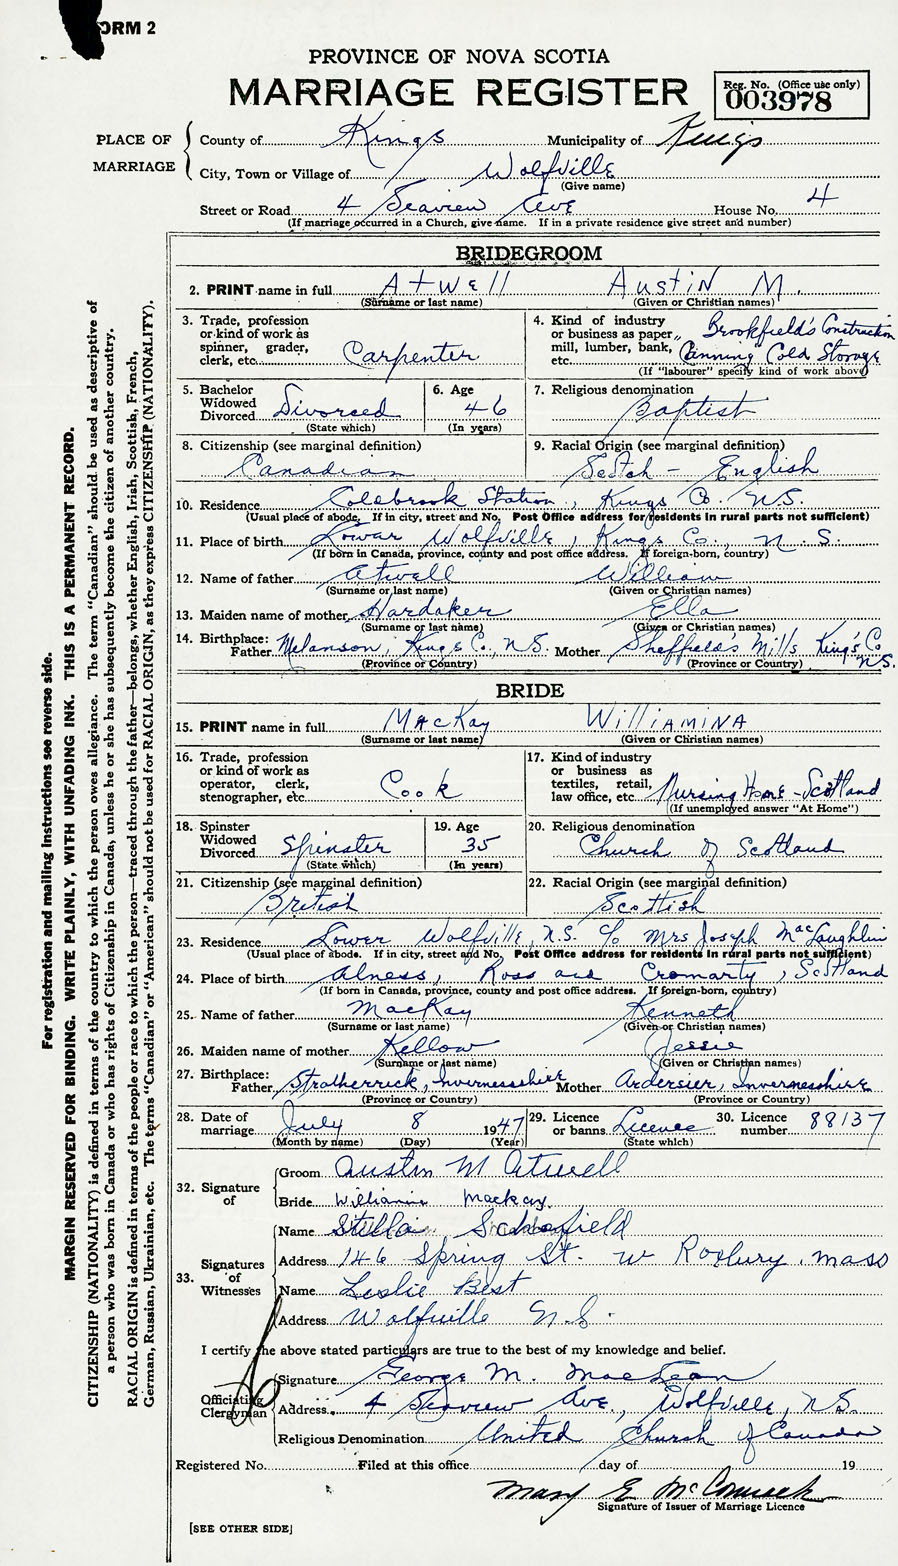 ORM 2
PROVINCE OF NOVA SCOTIA
MARRIAGE REGISTER
Reg. No. (Office use only)
003978
PLACE OF MARRIAGE
County of Kings Municipality of Kings
City, Town or Village of Wolfville
(Give name)
Street or Road 4 Seaview Ave House No. 4
(If marriage occurred in a Church, give name. If in a private residence give street and number)
BRIDEGROOM
2. PRINT name in full Atwell Austin M.
(Surname or last name) (Given or Christian names)
3. Trade, profession or kind of work as spinner, grader, clerk, etc. Carpenter
4. Kind of industry or business as paper mill, lumber, bank, etc. Brookfield's Construction Canning Cold Storage
(If "labourer" specify kind of work above)
5. Bachelor Widowed Divorced Divorced
(State which)
6. Age 46
(In years)
7. Religious denomination Baptist
8. Citizenship (see marginal definition) Canadian
9. Racial Origin (see marginal definition) Scotch - English
10. Residence Coldbrook Station, Kings Co. N.S.
(Usual place of abode. If in city, street and No. Post Office address for residents in rural parts not sufficient)
11. Place of birth Lowar Wolfville, Kings Co., N.S.
(If born in Canada, province, county and post office address. If foreign-born, country)
12. Name of father Atwell William
(Surname or last name) (Given or Christian names)
13. Maiden name of mother Hardaker Ella
(Surname or last name) (Given or Christian names)
14. Birthplace: Father Melanson, Kings Co., N.S. Mother Sheffield's Mills King's Co N.S.
(Province or Country) (Province or Country)
BRIDE
15. PRINT name in full MacKay Williamina
(Surname or last name) (Given or Christian names)
16. Trade, profession or kind of work as operator, clerk, stenographer, etc. Cook
17. Kind of industry or business as textiles, retail, law office, etc. Nursing Home - Scotland
(If unemployed answer "At Home")
18. Spinster Widowed Divorced Spinster
(State which)
19. Age 35
(In years)
20. Religious denomination Church of Scotland
21. Citizenship (see marginal definition) British
22. Racial Origin (see marginal definition) Scottish
23. Residence Lower Wolfville, N.S. c/o Mrs Joseph MacLaughlin
(Usual place of abode. If in city, street and No. Post Office address for residents in rural parts not sufficient)
24. Place of birth Alness, Ross and Cromarty, Scotland
(If born in Canada, province, county and post office address. If foreign-born, country)
25. Name of father MacKay Kenneth
(Surname or last name) (Given or Christian names)
26. Maiden name of mother Kellow Jessie
(Surname or last name) (Given or Christian names)
27. Birthplace: Father Stratherrick, Invernessshire Mother Ardersier, Invernessshire
(Province or Country) (Province or Country)
28. Date of marriage July 8 1947
(Month by name) (Day) (Year)
29. Licence or banns Licence
(State which)
30. Licence number 88137
32. Signature of
Groom Austin M Atwell
Bride Williamina Mackay
33. Signatures of Witnesses
Name Stella Schofield
Address 146 Spring St. W Roxbury, Mass
Name Leslie Best
Address Wolfville N.S.
I certify the above stated particulars are true to the best of my knowledge and belief.
Officiating Clergyman
Signature George M. MacLean
Address 4 Seaview Ave., Wolfville, N.S.
Religious Denomination United Church of Canada
Registered No. Filed at this office day of 19
Mary E McCormack
Signature of Issuer of Marriage Licence
[SEE OTHER SIDE]
For registration and mailing instructions see reverse side.
MARGIN RESERVED FOR BINDING. WRITE PLAINLY, WITH UNFADING INK. THIS IS A PERMANENT RECORD.
CITIZENSHIP (NATIONALITY) is defined in terms of the country to which the person owes allegiance. The term "Canadian" should be used as descriptive of
a person who was born in Canada or who has rights of Citizenship in Canada, unless he or she has subsequently become the citizen of another country.
RACIAL ORIGIN is defined in terms of the people or race to which the person—traced through the father—belongs, whether English, Irish, Scottish, French,
German, Russian, Ukrainian, etc. The terms "Canadian" or "American" should not be used for RACIAL ORIGIN, as they express CITIZENSHIP (NATIONALITY).